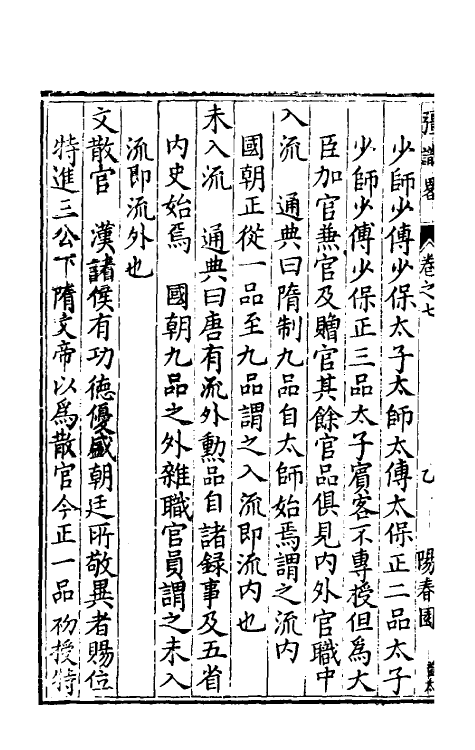 卷之七
陽春園
少師少傅少保太子太師太傅太保正二品太子
少師少傅少保正三品太子賓客不專授但為大
臣加官兼官及贈官其餘官品俱見内外官職中
入流　通典曰隋制九品自太師始焉謂之流内
國朝正從一品至九品謂之入流即流内也
未入流　通典曰唐有流外勲品自諸録事及五省
内史始焉　國朝九品之外雜職官員謂之未入
流即流外也
文散官　漢諸侯有功德優盛朝廷所敬異者賜位
特進三公下隋文帝以為散官今正一品初授特